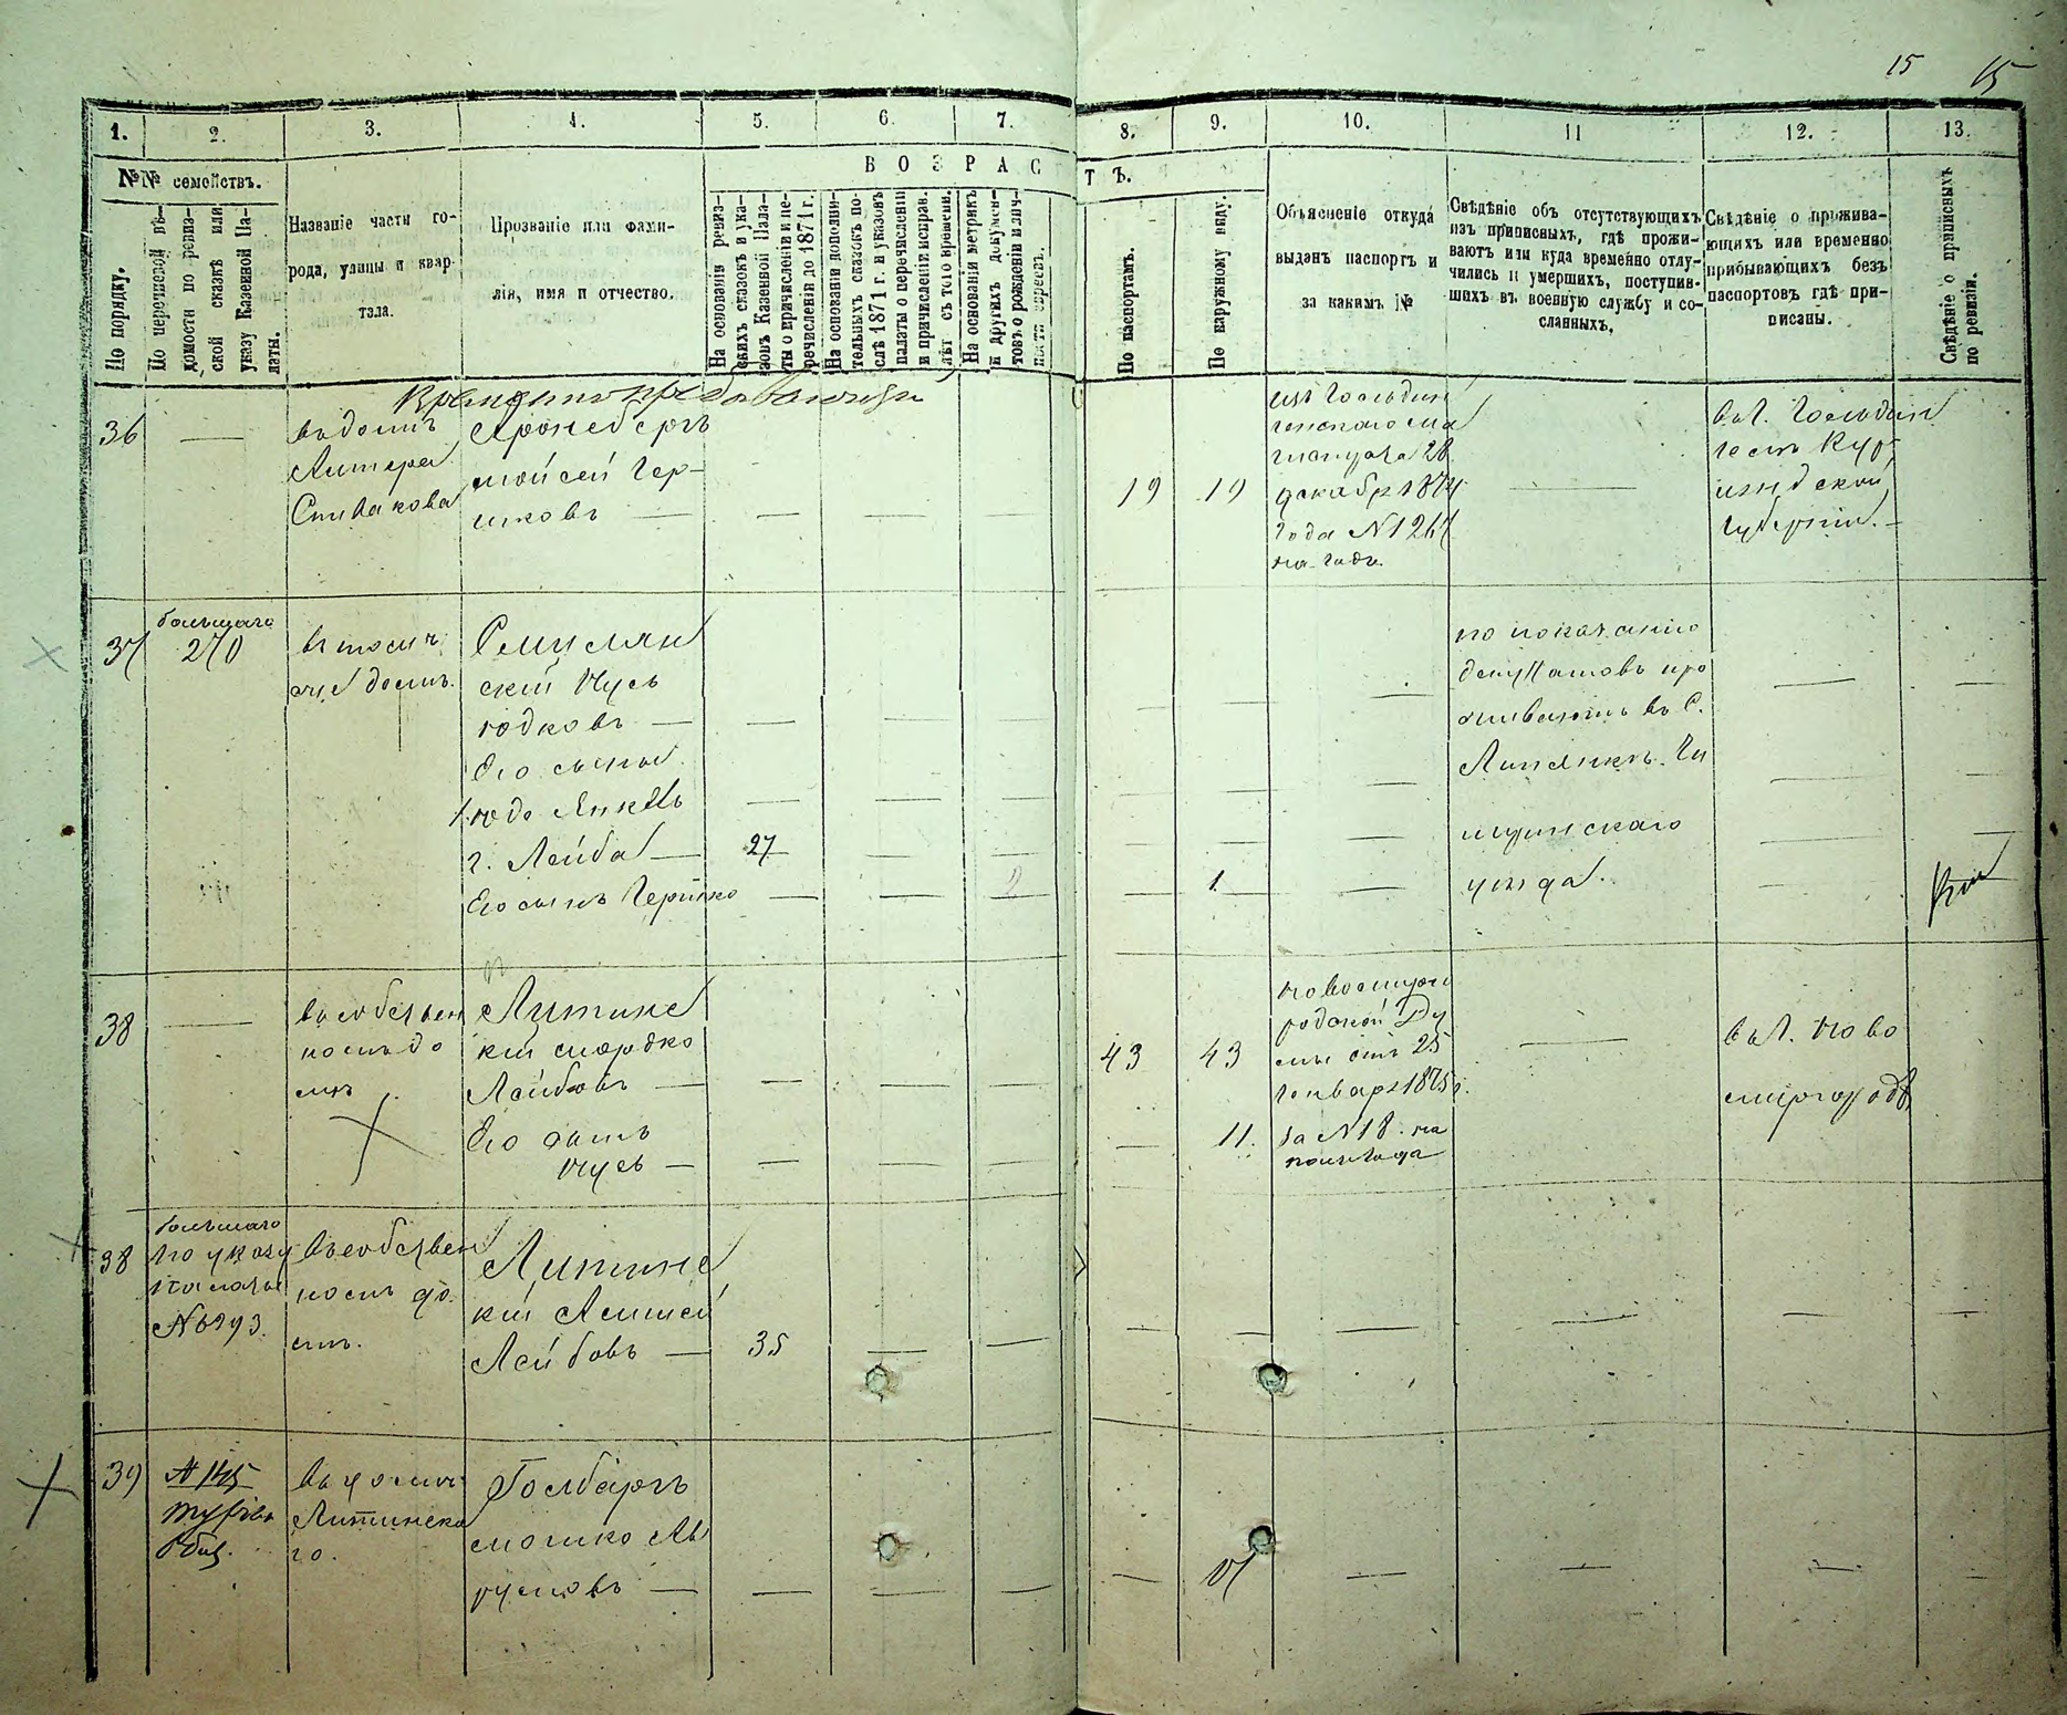 15 15
1. 2. 3. 4. 5. 6. 7. 8. 9. 10. 11 12. 13.
№№ семействъ.
По порядку.
По перечневой вѣ-
домости по ревиз-
ской сказкѣ или
указу Казенной Па-
латы.
Названіе части го-
рода, улицы и квар-
тала.
Прозваніе или фами-
лія, имя и отчество.
ВОЗРАСТЪ.
На основаніи ревиз-
скихъ сказокъ и ука-
зовъ Казенной Пала-
ты о причисленіи и пе-
речисленіи до 1871 г.
На основаніи дополни-
тельныхъ сказокъ по-
слѣ 1871 г. и указовъ
палаты о перечисленіи
и причисленіи исправ.
лѣт съ того времени.
На основаніи метрикъ
и другихъ докумен-
товъ о рожденіи и лич-
По паспортамъ.
По наружному виду.
Объясненіе откуда
выданъ паспортъ и
за какимъ №
Свѣдѣніе объ отсутствующихъ
изъ приписныхъ, гдѣ прожи-
ваютъ или куда временно отлу-
чились и умершихъ, поступив-
шихъ въ военную службу и со-
сланныхъ.
Свѣдѣніе о прожива-
ющихъ или временно
прибывающихъ безъ
паспортовъ гдѣ при-
писаны.
Свѣдѣніе о приписныхъ
по ревизіи.
36
въ домѣ
Спивакова
Аронсбергъ
Мойсей Гер-
шковъ
19 19
28
декабр 1874
года №1267
на годъ.
Кур-
ляндской
губерніи.
37
большаго
270
въ томъ
же домѣ.
Смилян
скій Нусь
Іодковъ
Его сыны
1. Іодо Янкель
2. Лейба 27
Его сынъ Гершко 1
по показанію
депутатовъ про
живаютъ въ С.
уѣзда.
38
въ собствен
номъ до
мѣ
Литинс
кій Мордко
Лейбовъ
Его сынъ
Нусь
43 43
11.
Новомирго
родской Ду
мы отъ 25
Январ 1875 г.
за №18. на
полгода
въ г. Ново
миргородѣ
38
большаго
по указу
палаты
№6993.
въ собствен
номъ до
мѣ.
Литинс
кій
Лейбовъ 35
39
въ домѣ
Литинска
го.
Голбергъ
Мошко Ав
румовъ